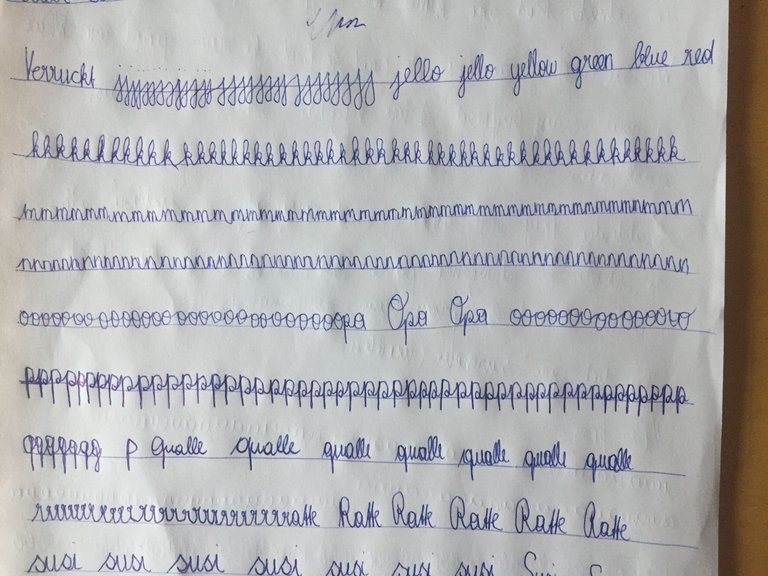 Verruckt jjjjjjjjjjjjjjjjjjjjjjjj jello jello yellow green blue red
kkkkkkkkkkkkkkkkkkkkkkkkkkkkkkkkkkkkkkkkkkkk
mmmmmmmmmmmmmmmmmmmmmmmmmmmmmmmmmmm
nnnnnnnnnnnnnnnnnnnnnnnnnnnnnnnnnnnnnnnnnnn
oooooooooooooooooooooooooopa Opa Opa oooooooooooooo
pppppppppppppppppppppppppppppppppppppppppppppp
qqqqqqqq p qualle qualle qualle qualle qualle qualle qualle
rrrrrrrrrrrrrrrrrrrrrrratte Ratte Ratte Ratte Ratte Ratte
susi susi susi susi susi susi susi